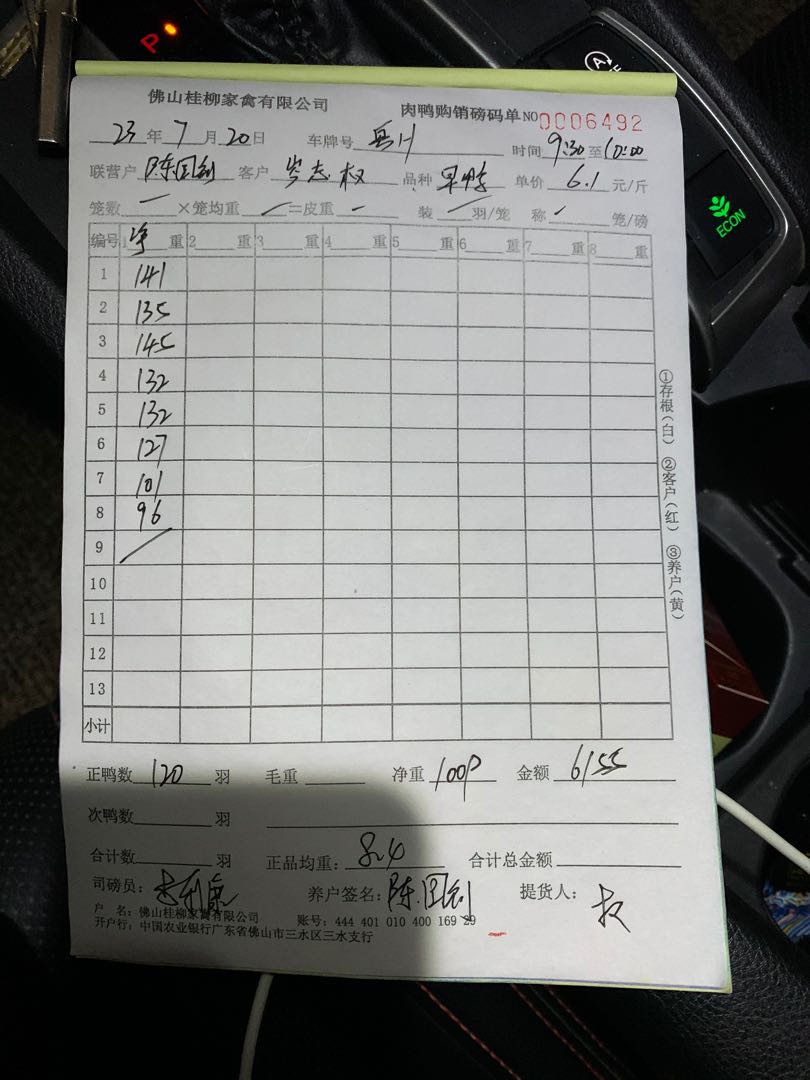 P
A
ECON
佛山桂柳家禽有限公司 肉鸭购销磅码单 NO 0006492
23 年 7 月 20 日 车牌号 时间 9:30 至 10:00
联营户 陈国利 客户 岑志权 品种 单价 6.1 元/斤
笼数 一 ×笼均重 ／ =皮重 - 装 ／ 羽/笼 称 ／ 笼/磅
编号 1 净 重 2 重 3 重 4 重 5 重 6 重 7 重 8 重
1 141
2 135
3 145
4 132
5 132
6 127
7 101
8 96
9 ／
10
11
12
13
小计
①存根(白) ②客户(红) ③养户(黄)
正鸭数 120 羽 毛重 净重 1009 金额 6155
次鸭数 羽
合计数 羽 正品均重: 8.4 合计总金额
司磅员: 养户签名: 陈国利 提货人: 权
户 名: 佛山桂柳家禽有限公司 账号: 444 401 010 400 169 29
开户行: 中国农业银行广东省佛山市三水区三水支行